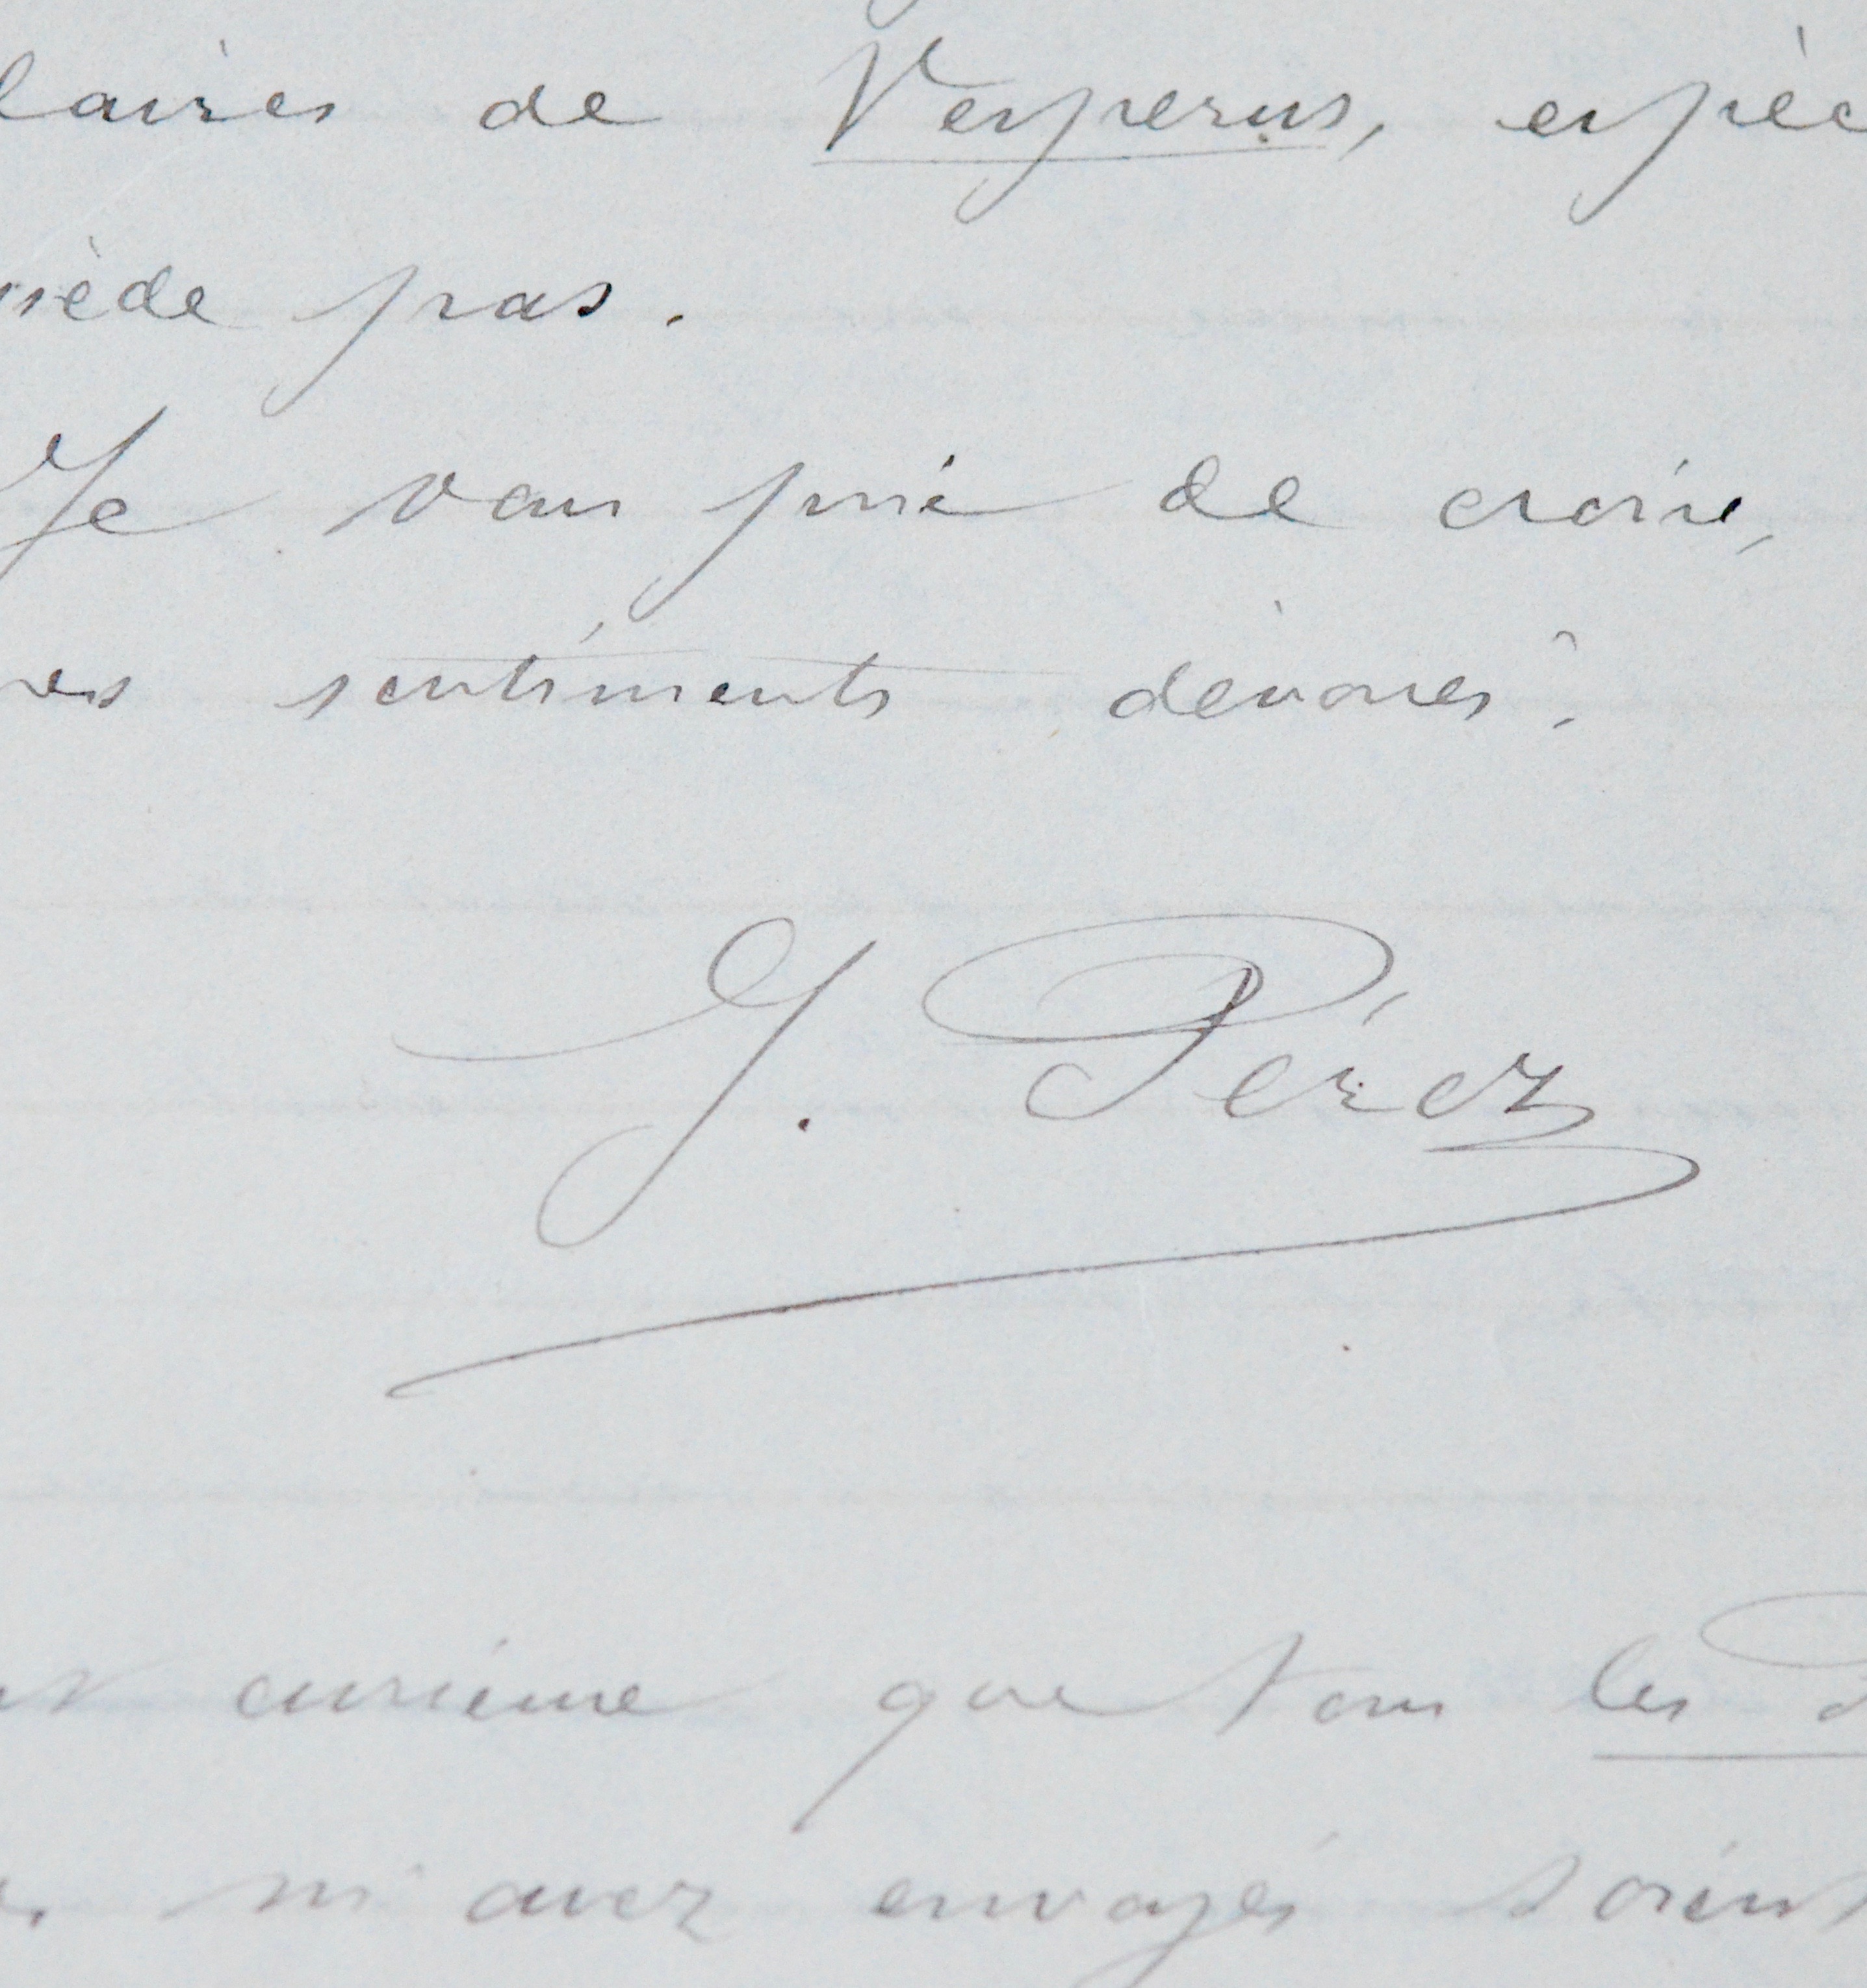 laires de Vesperus, espèc
ssède pas.
Je vous prie de croire,
mes sentiments dévoués.
J. Pérez
curieux que tous les
m'avez envoyés soient